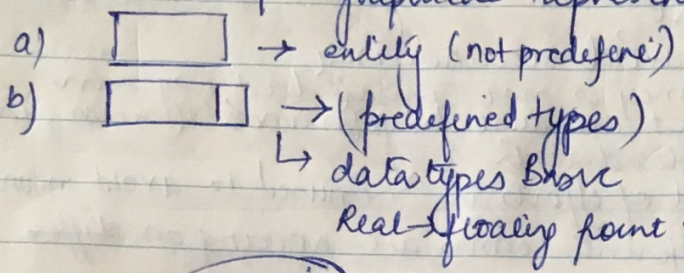 a) → entity (not predefene)
b) → (predefined types)
↳ data types Basic
Real → floating point